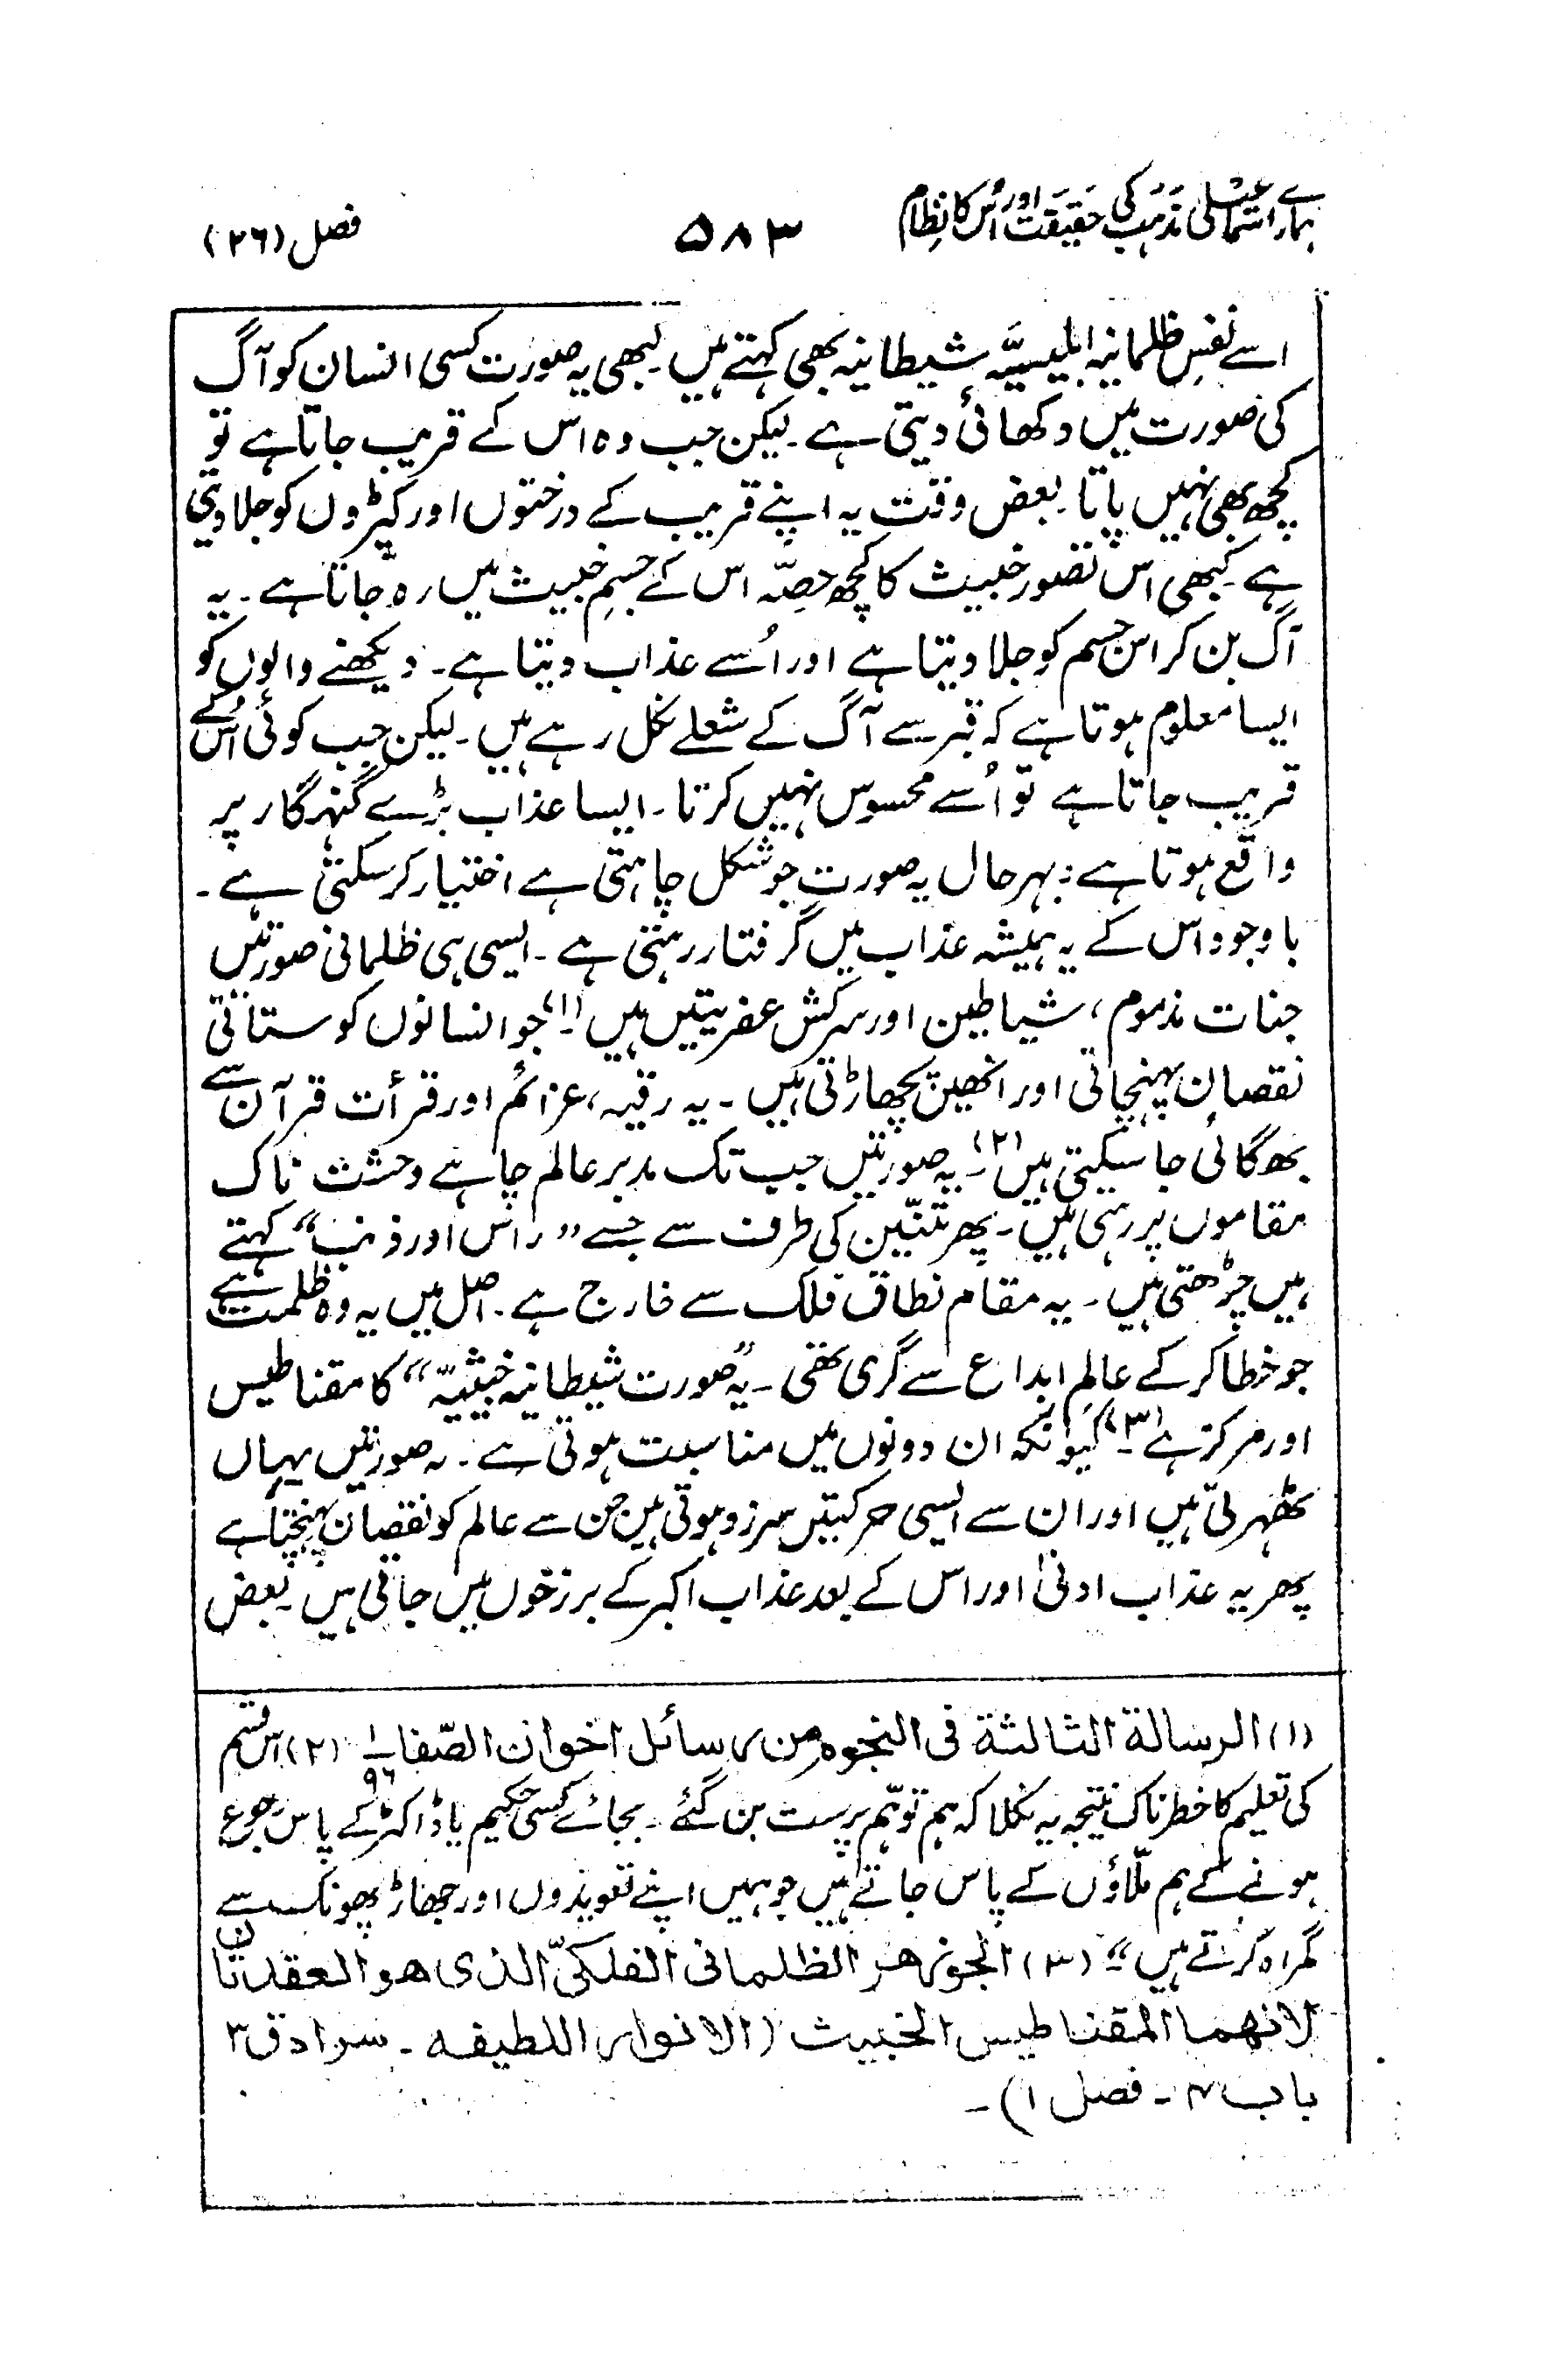 ہمارے اسماعیلی مذہب کی حقیقت اور اُس کا نظام ۵۸۳ فصل (۲۶)
اسے نفسِ ظلمانیہ ابلیسیَّہ شیطانیہ بھی کہتے ہیں۔ کبھی یہ صورت کسی انسان کو آگ
کی صورت میں دکھائی دیتی ہے۔ لیکن جب وہ اس کے قریب جاتا ہے تو
کچھ بھی نہیں پاتا۔ بعض وقت یہ اپنے قریب کے درختوں اور کپڑوں کو جلا دیتی
ہے۔ کبھی اس تصور خبیث کا کچھ حصّہ اس کے جسمِ خبیث میں رہ جاتا ہے۔ یہ
آگ بن کر اس جسم کو جلا دیتا ہے اور اُسے عذاب دیتا ہے۔ دیکھنے والوں کو
ایسا معلوم ہوتا ہے کہ قبر سے آگ کے شعلے نکل رہے ہیں۔ لیکن جب کوئی اُس کے
قریب جاتا ہے تو اُسے محسوس نہیں کرتا۔ ایسا عذاب بڑے گنہگار پر
واقع ہوتا ہے: بہرحال یہ صورت جو شکل چاہتی ہے اختیار کرسکتی ہے۔
باوجود اس کے یہ ہمیشہ عذاب میں گرفتار رہتی ہے۔ ایسی ہی ظلمانی صورتیں
جنات مذموم، شیاطین اور سرکش عفریتیں ہیں (۱)۔ جو انسانوں کو ستاتی
نقصان پہنچاتی اور انھیں پچھاڑتی ہیں۔ یہ رقیہ، عزائم اور قرأت قرآن سے
بھگائی جا سکیتی ہیں (۲)۔ یہ صورتیں جب تک مدبر عالم چاہے وحشت ناک
مقاموں پر رہتی ہیں۔ پھر تنّین کی طرف سے جسے ”راس اور ذنب“ کہتے
ہیں چڑھتی ہیں۔ یہ مقام نطاق فلک سے خارج ہے۔ اصل میں یہ وہ ظلمت ہے
جو خطا کرکے عالمِ ابداع سے گری تھی۔ یہ ”صورت شیطانیہ خبیثیّہ“ کا مقناطیس
اور مرکز ہے (۳)۔ کیونکہ ان دونوں میں مناسبت ہوتی ہے۔ یہ صورتیں یہاں
ٹھہرتی ہیں اور ان سے ایسی حرکیتیں سرزد ہوتی ہیں جن سے عالم کو نقصان پہنچتا ہے
پھر یہ عذاب ادنیٰ اور اس کے بعد عذاب اکبر کے برزخوں میں جاتی ہیں۔ بعض
(۱) الرسالة الثالثة فی النجوم من رسائل اخوان الصّفا ۱/۹۶ (۲) اس قسم
کی تعلیم کا خطرناک نتیجہ یہ نکلا کہ ہم توہّم پرست بن گئے۔ بجائے کسی حکیم یا ڈاکٹر کے پاس رجوع
ہونے کے ہم ملّاؤں کے پاس جاتے ہیں جو ہمیں اپنے تعویذوں اور جھاڑ پھونک سے
گمراہ کرتے ہیں“ (۳) الجوزھر الظلمانی الفلکیّ الذی ھو العقدتان
لانھما المقناطیس الخبیث (الانوار اللطیفہ۔ سرادق ۳
باب ۴۔ فصل ۱)۔